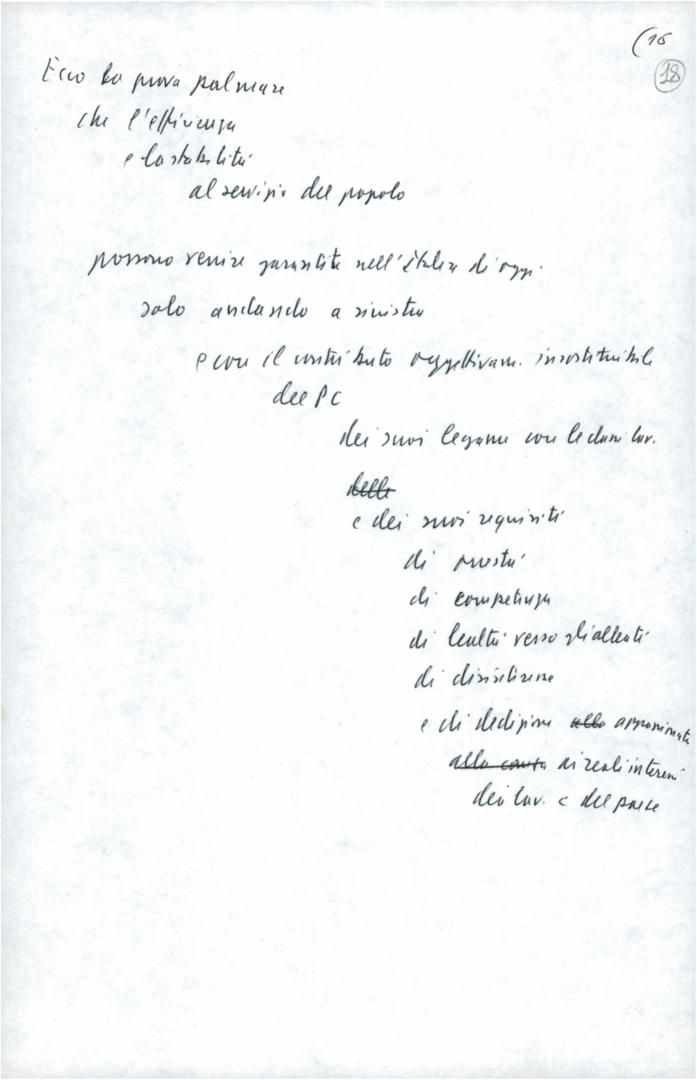 (16
18
Ecco la prova palmare
che l'efficienza
e la stabilità
al servizio del popolo
possono venire garantite nell'Italia di oggi
solo andando a sinistra
e con il contributo oggettivam. insostituibile
del PC
dei suoi legami con le classi lav.
delle
e dei suoi requisiti
di onestà
di competenza
di lealtà verso gli alleati
di disinteresse
e di dedizione alla appassionata
alla causa ai reali interessi
dei lav. e del paese